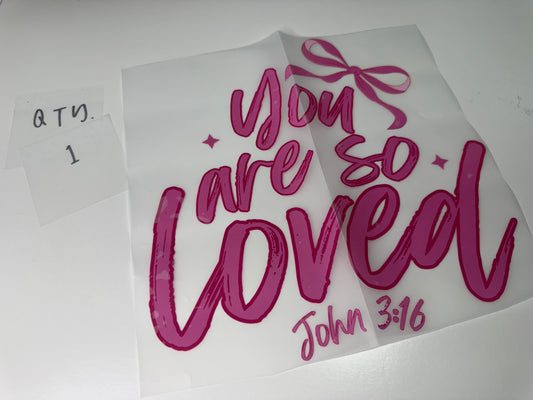 QTY.
1
you
are so
loved
John 3:16